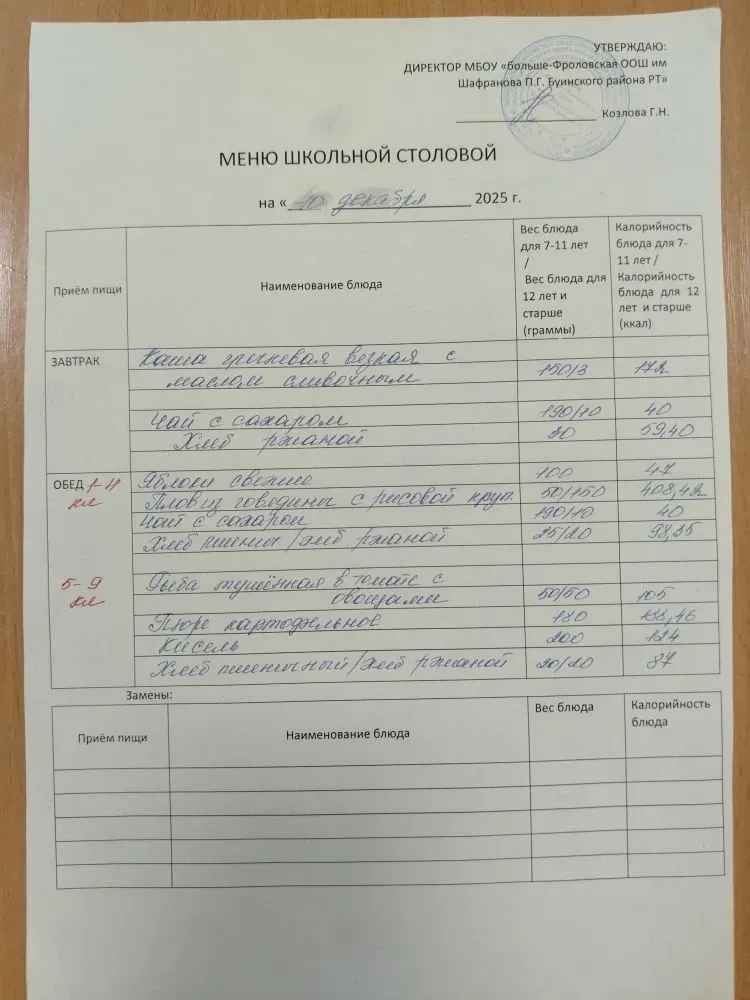 УТВЕРЖДАЮ:
ДИРЕКТОР МБОУ «больше-Фроловская ООШ им
Шафранова П.Г. Буинского района РТ»
Козлова Г.Н.
МЕНЮ ШКОЛЬНОЙ СТОЛОВОЙ
на « 10 декабря 2025 г.
Приём пищи
Наименование блюда
Вес блюда
для 7-11 лет
/
Вес блюда для
12 лет и
старше
(граммы)
Калорийность
блюда для 7-
11 лет /
Калорийность
блюда для 12
лет и старше
(ккал)
ЗАВТРАК
Каша гречневая вязкая с
маслом сливочным 150/3 172
Чай с сахаром 190/10 40
Хлеб ржаной 30 59,40
ОБЕД 1-4
кл
Яблоки свежие 100 47
Плов из говядины с рисовой круп. 50/150 408,42
Чай с сахаром 190/10 40
Хлеб пшенич/хлеб ржаной 25/20 98,35
5-9
кл
Рыба тушённая в томате с
овощами 50/50 105
Пюре картофельное 180
Кисель 200 124
Хлеб пшеничный/хлеб ржаной 20/20 87
Замены:
Приём пищи
Наименование блюда
Вес блюда
Калорийность
блюда